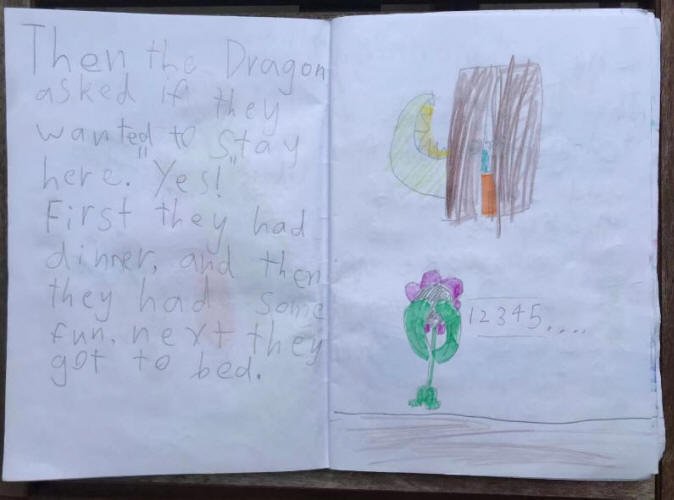 Then the Dragon
asked if they
wanted to stay
here. "Yes!"
First they had
dinner, and then
they had some
fun. next they
got to bed.
12345....